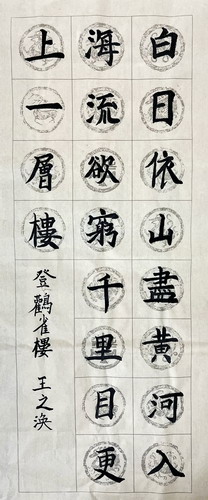 白日依山盡黄河入
海流欲窮千里目更
上一層樓
登鸛雀樓 王之渙